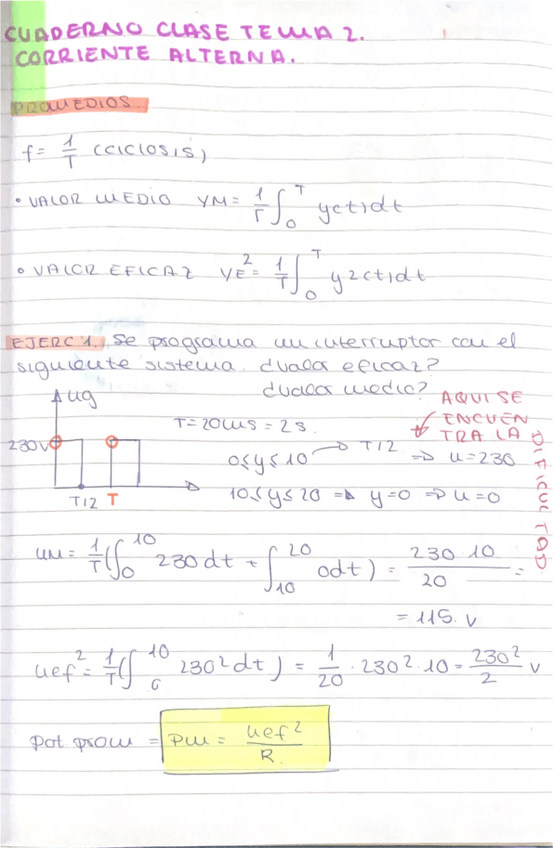 CUADERNO CLASE TEMA 2.
CORRIENTE ALTERNA.
PROMEDIOS
f = 1/T (CICLOS/S)
• VALOR MEDIO YM = 1/T ∫₀ᵀ y(t)dt
• VALOR EFICAZ YE² = 1/T ∫₀ᵀ y²(t)dt
EJERC 1. Se programa un interruptor con el
siguiente sistema. ¿Valor eficaz?
¿Valor medio?
ug
230V
T/2 T
T = 20ms = 2s.
AQUI SE
ENCUEN
TRA LA
DIFICULTAD.
0≤y≤10 → T/2 ⇒ u=230
10≤y≤20 ⇒ y=0 ⇒ u=0
um = 1/T (∫₀¹⁰ 230dt + ∫₁₀²⁰ 0dt) = 230·10/20 =
= 115. V
uef² = 1/T (∫₀¹⁰ 230²dt) = 1/20 · 230² · 10 = 230²/2 V
Pot prom = Pm = uef²/R.